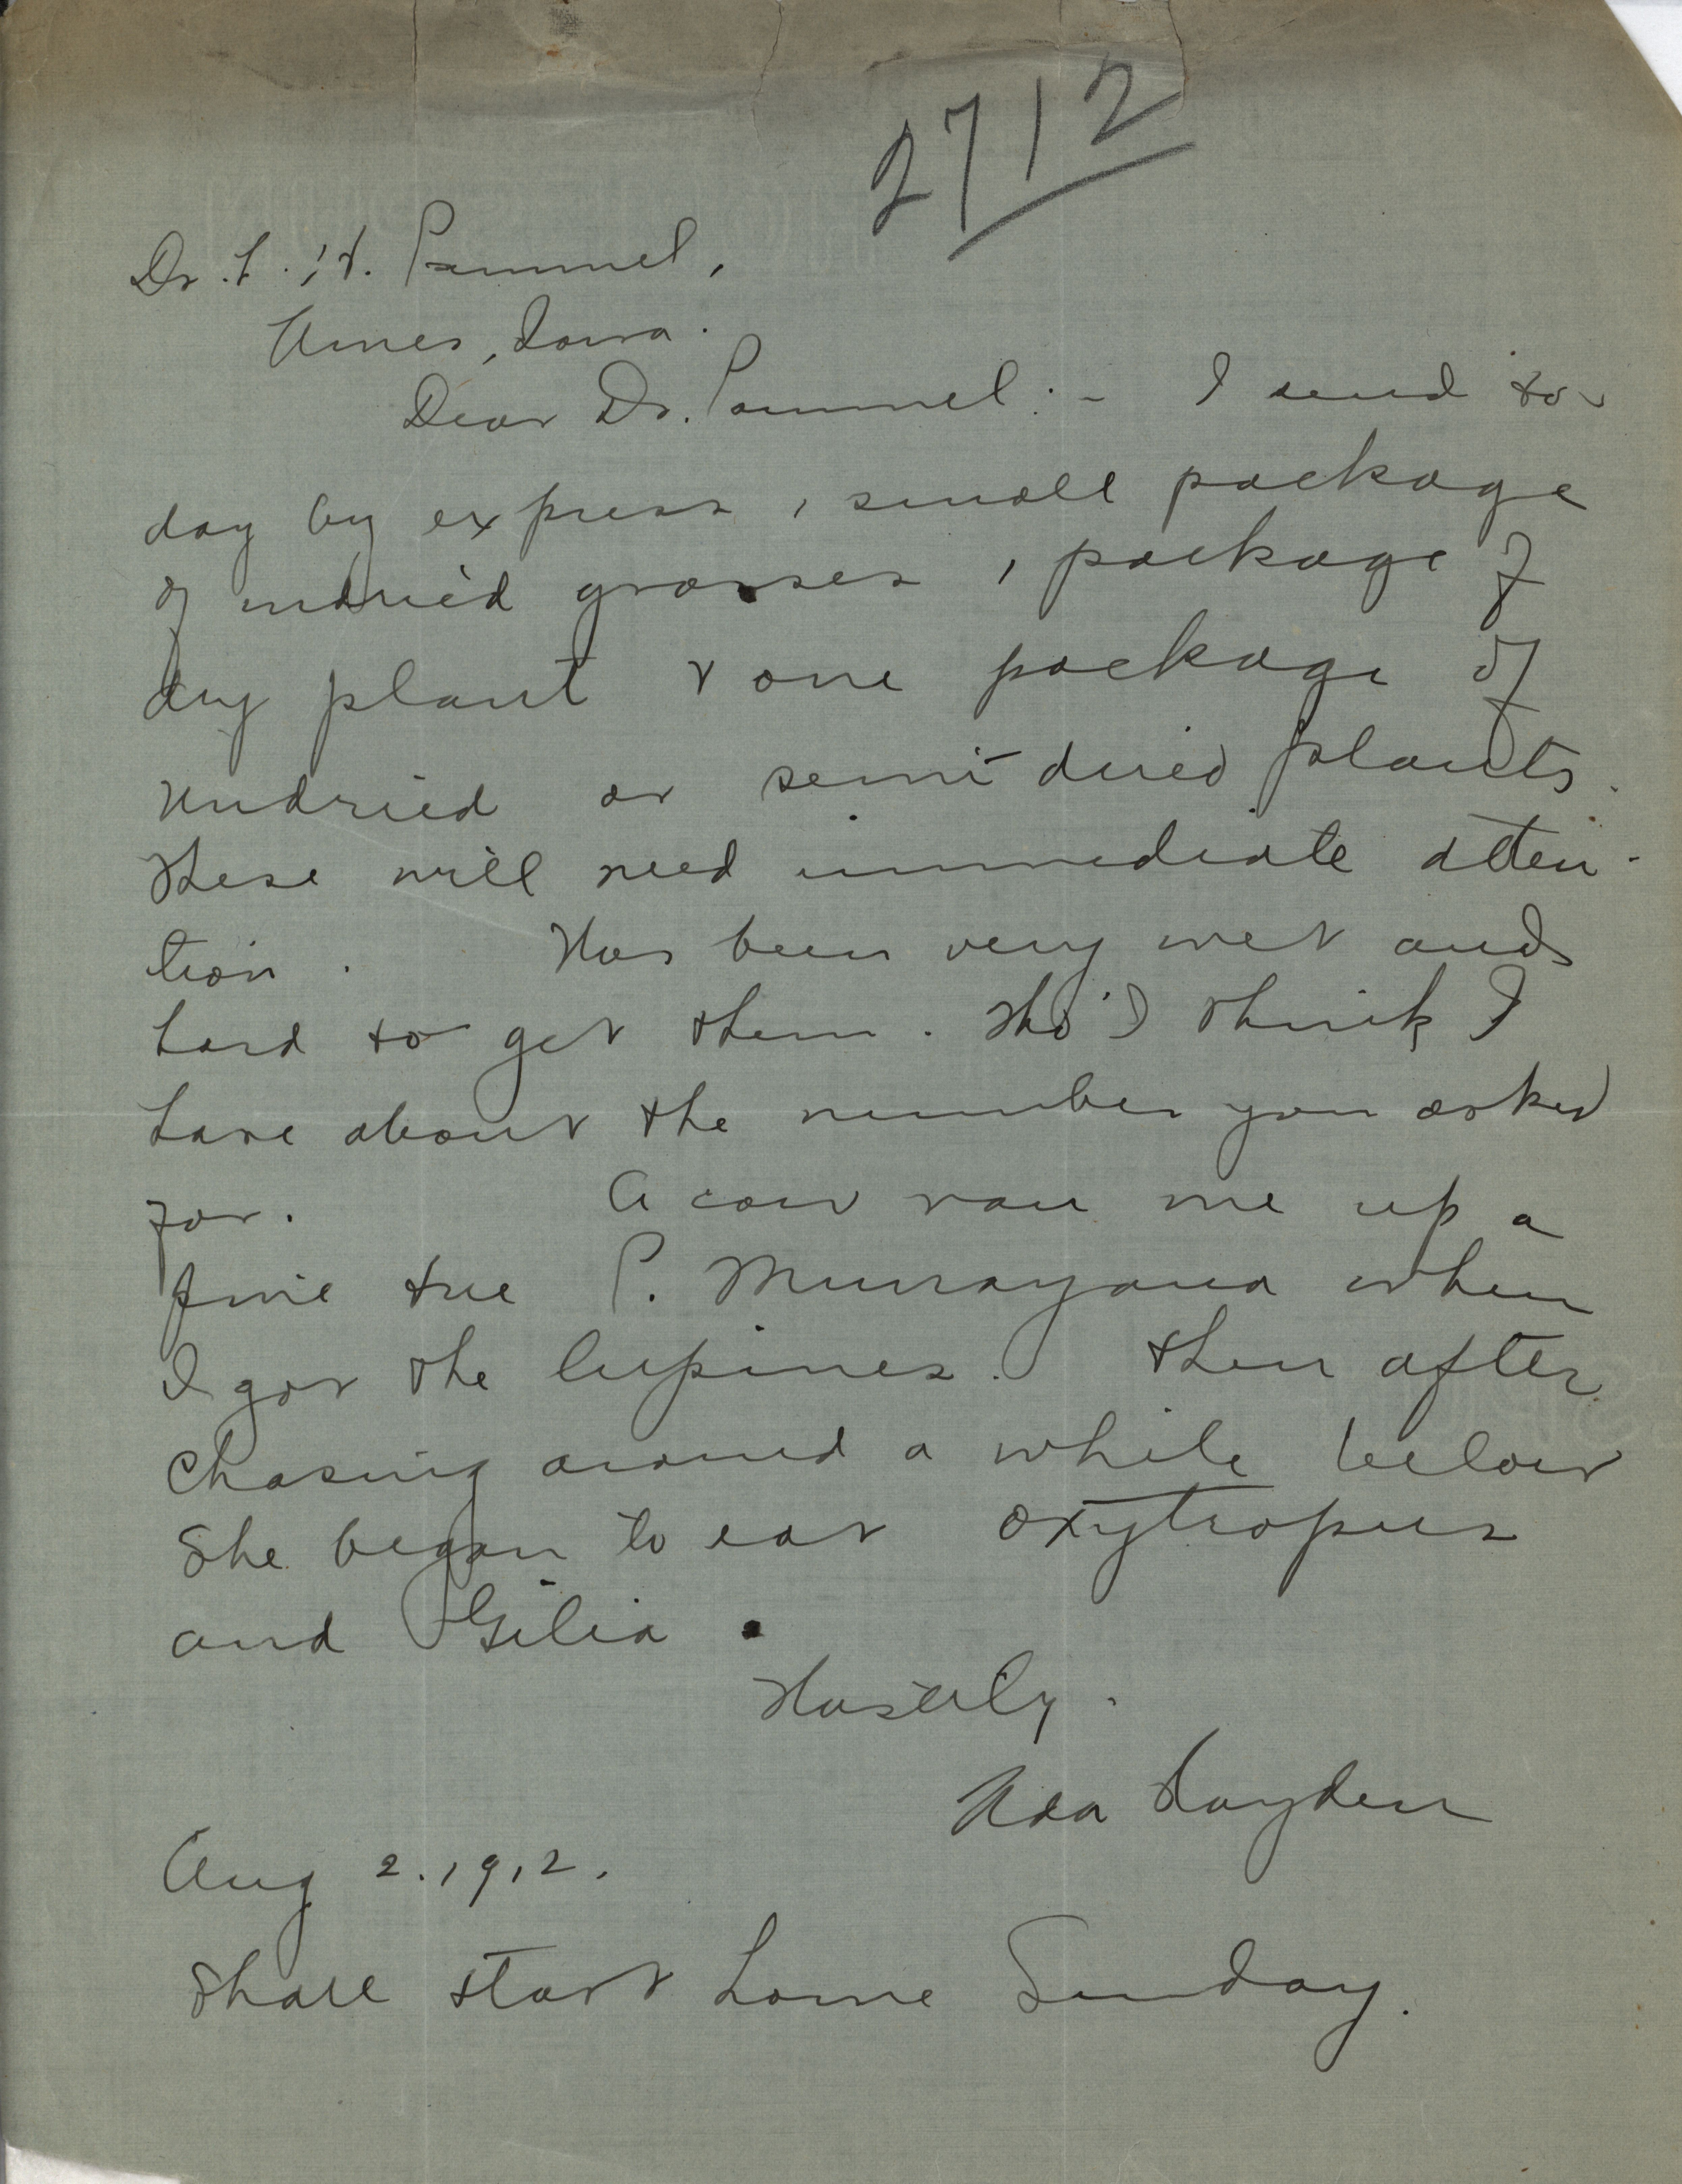 2712
Dr. L. H. Pammel,
Ames, Iowa.
Dear Dr. Pammel:- I send to-
day by express, 1 small package
of undried grasses, 1 package of
dry plant & one package of
undried or semi-dried plants.
These will need immediate atten-
tion. Has been very wet and
hard to get them. Tho' I think I
have about the number you asked
for. A cow ran me up a
pine tree P. Murrayana when
I got the lupines. Then after
chasing around a while below
she began to eat oxytropus
and Gilia.
Hastily.
Ada Hayden
Aug 2. 1912.
Shall start home Sunday.